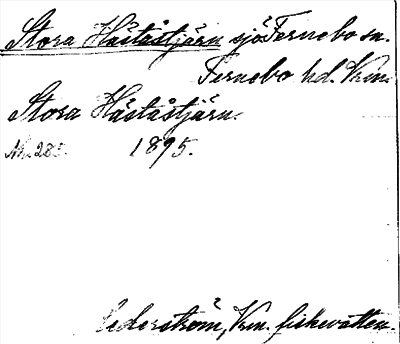 Stora Håståstjärn sjö Fernebo sn.
Fernebo hd. Vrm.
Stora Håståstjärn.
1895.
Cederström, Vrm. fiskevatten.